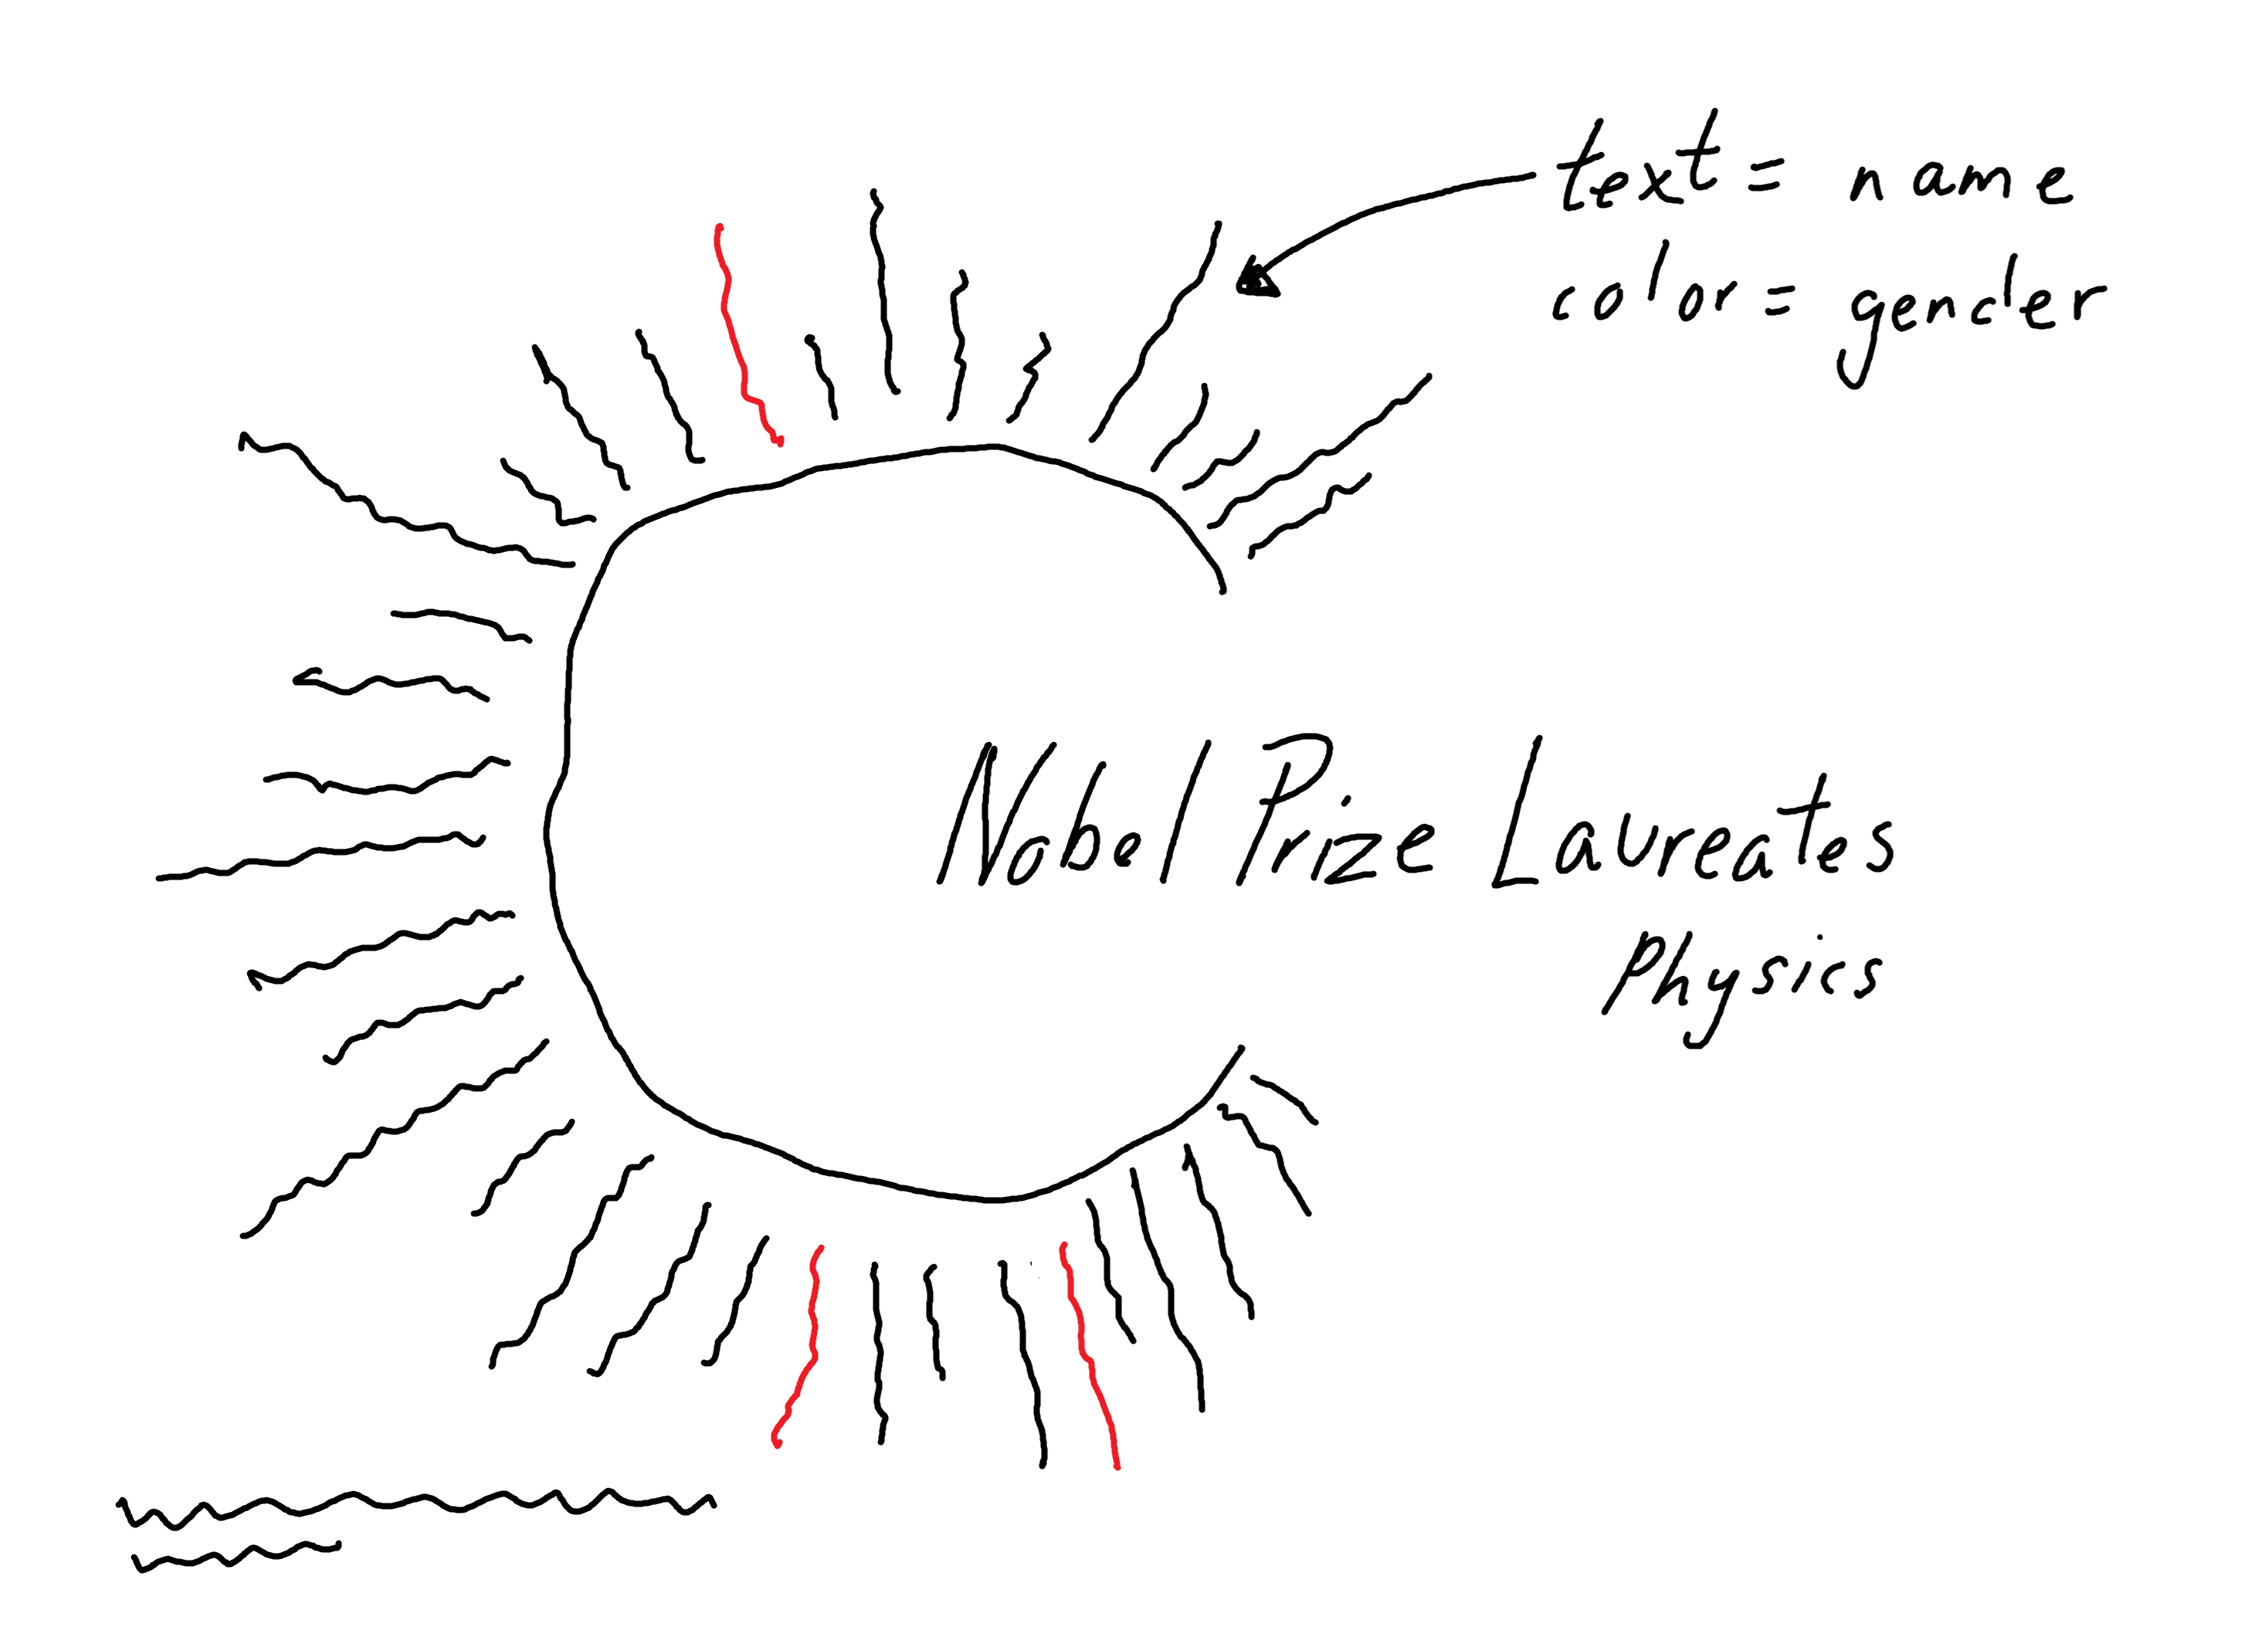 text = name
color = gender
Nobel Prize Laureates
Physics